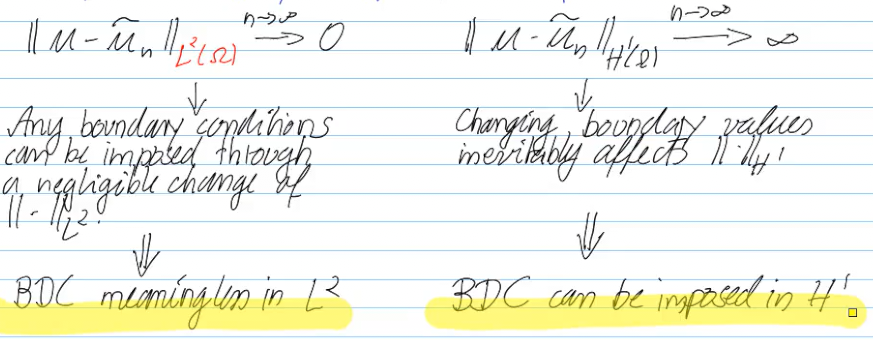 ‖ u - ũₙ ‖_{L²(Ω)} →^{n→∞} 0
‖ u - ũₙ ‖_{H¹(Ω)} →^{n→∞} ∞
↓
Any boundary conditions
can be imposed through
a negligible change of
‖·‖_{L²}.
⇓
BDC meaningless in L²
↓
Changing boundary values
inevitably affects ‖·‖_{H¹}
⇓
BDC can be imposed in H¹